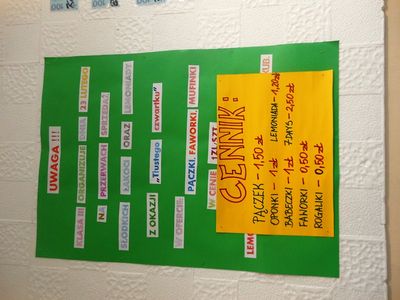 UWAGA !!!
KLASA III ORGANIZUJE DNIA 23 LUTEGO
NA PRZERWACH SPRZEDAŻ
SŁODKICH ŁAKOCI ORAZ LEMONIADY
Z OKAZJI „Tłustego czwartku”
W OFERCIE: PĄCZKI, FAWORKI, MUFINKI
W CENIE 1ZŁ/SZT.
LEMO
KUB.
CENNIK:
PĄCZEK – 1,50 zł
OPONKI – 1 zł LEMONIADA – 1,20 zł
BABECZKI – 1 zł 7 DAYS – 2,50 zł
FAWORKI – 0,50 zł
ROGALIKI – 0,50 zł